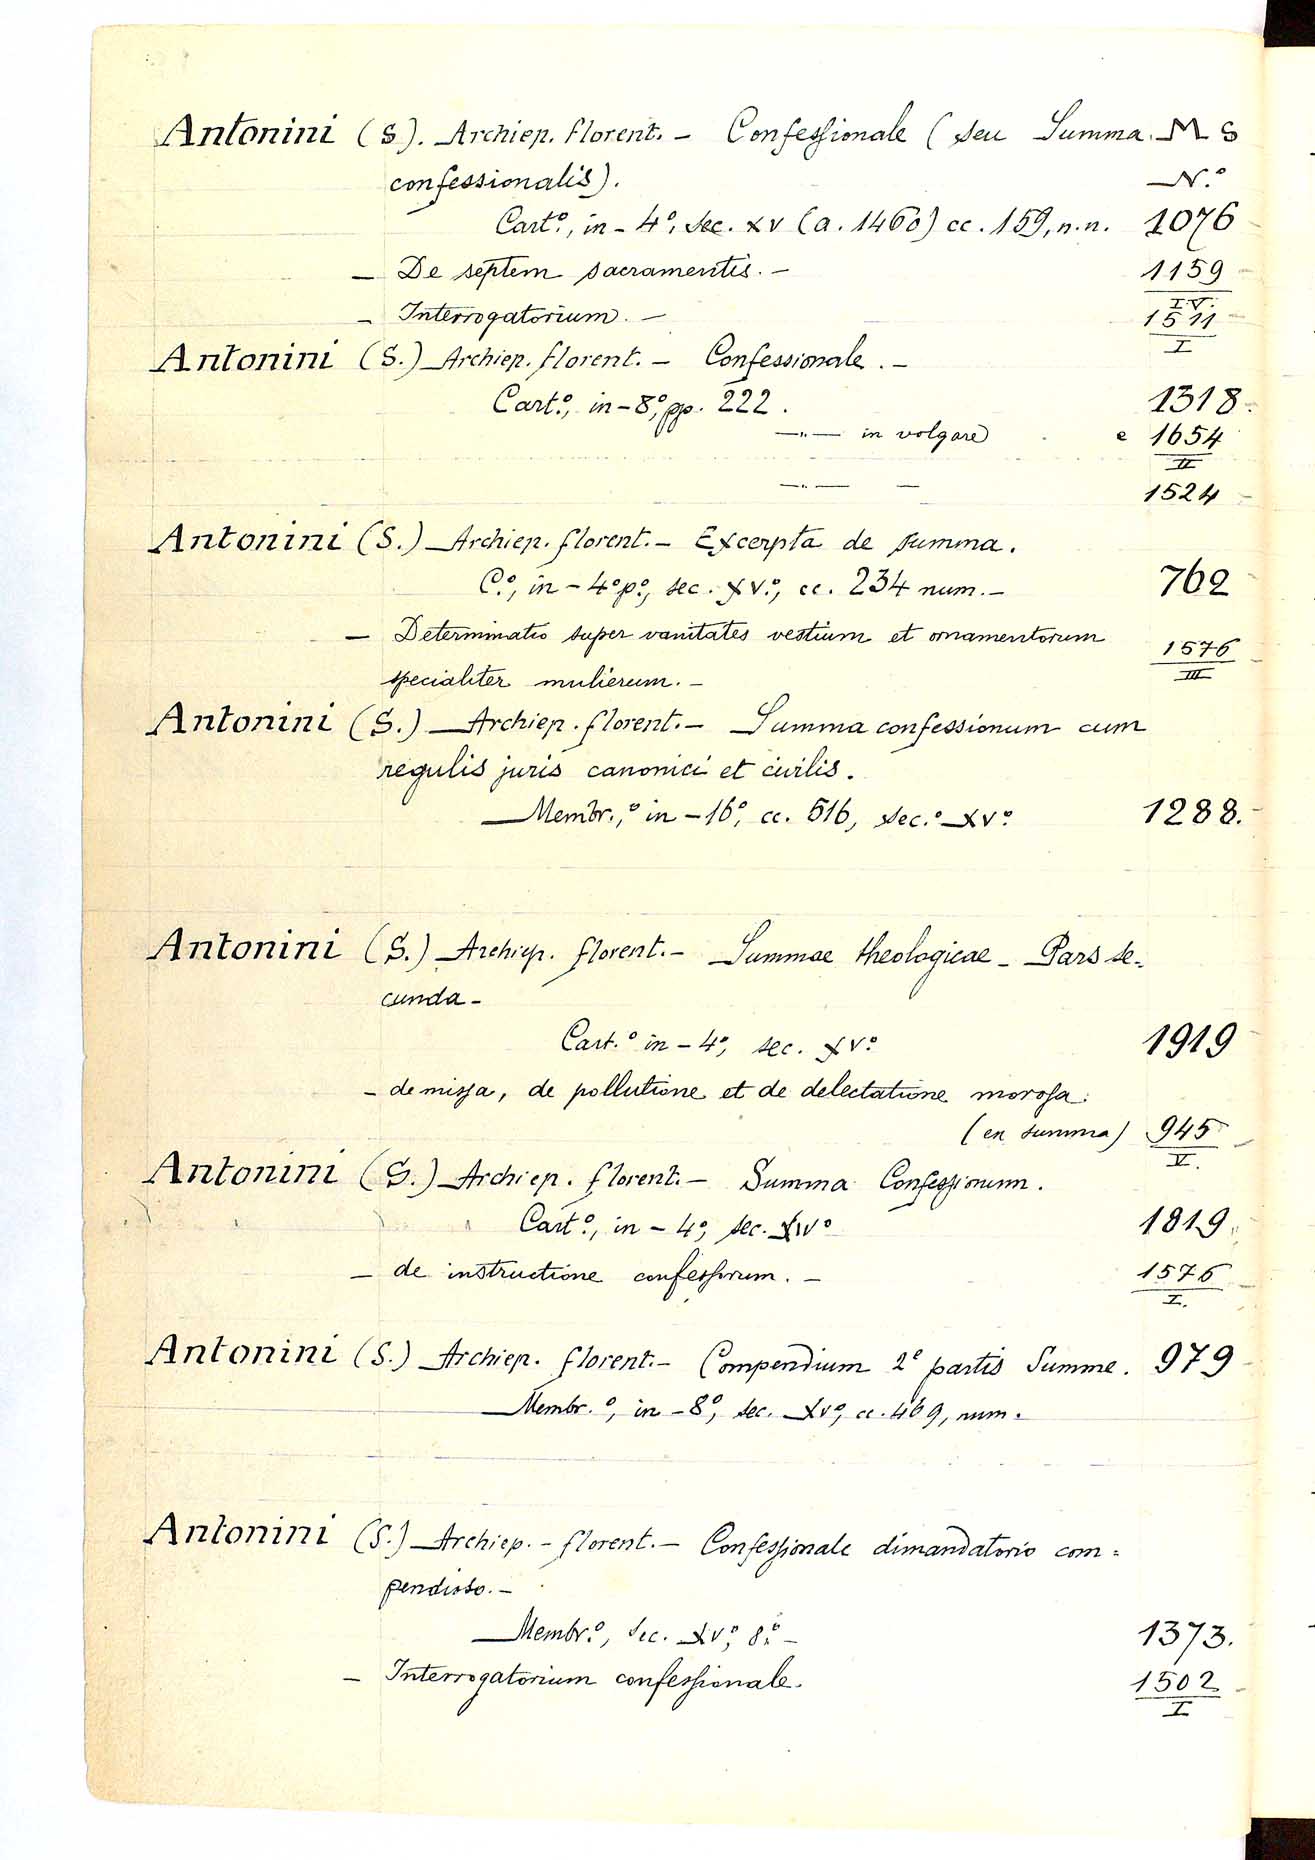 Antonini (S). Archiep. florent. – Confessionale (seu Summa. MS
confessionalis). N.º
Cart.º, in-4º, sec. XV (a. 1460) cc. 159, n.n. 1076
– De septem sacramentis. – 1159
IV.
– Interrogatorium. – 1511
I
Antonini (S.) Archiep. florent. – Confessionale. –
Cart.º, in-8º, pp. 222. 1318.
–"– in volgare e 1654
II
–"– – 1524
Antonini (S.) Archiep. florent. – Excerpta de summa.
C.º, in-4º pº, sec. XVº, cc. 234 num. – 762
– Determinatio super vanitates vestium et ornamentorum 1576
specialiter mulierum. – III
Antonini (S.) Archiep. florent. – Summa confessionum cum
regulis juris canonici et civilis.
Membr.º, in-16º, cc. 516, sec.º XVº 1288.
Antonini (S.) Archiep. florent. – Summae theologicae – Pars se-
cunda –
Cart.º in-4º, sec. XVº 1919
– de missa, de pollutione et de delectatione morosa.
(ex summa) 945
V.
Antonini (S.) Archiep. florent. – Summa Confessionum.
Cart.º, in-4º, sec. XIVº 1819.
– de instructione confessorum. – 1576
I.
Antonini (S.) Archiep. florent. – Compendium 2º partis Summe. 979
Membr.º, in-8º, sec. XVº, cc. 469, num.
Antonini (S.) Archiep. – florent. – Confessionale dimandatorio com=
pendioso. –
Membr.º, sec. XVº, 8.º – 1373.
– Interrogatorium confessionale. 1502
I